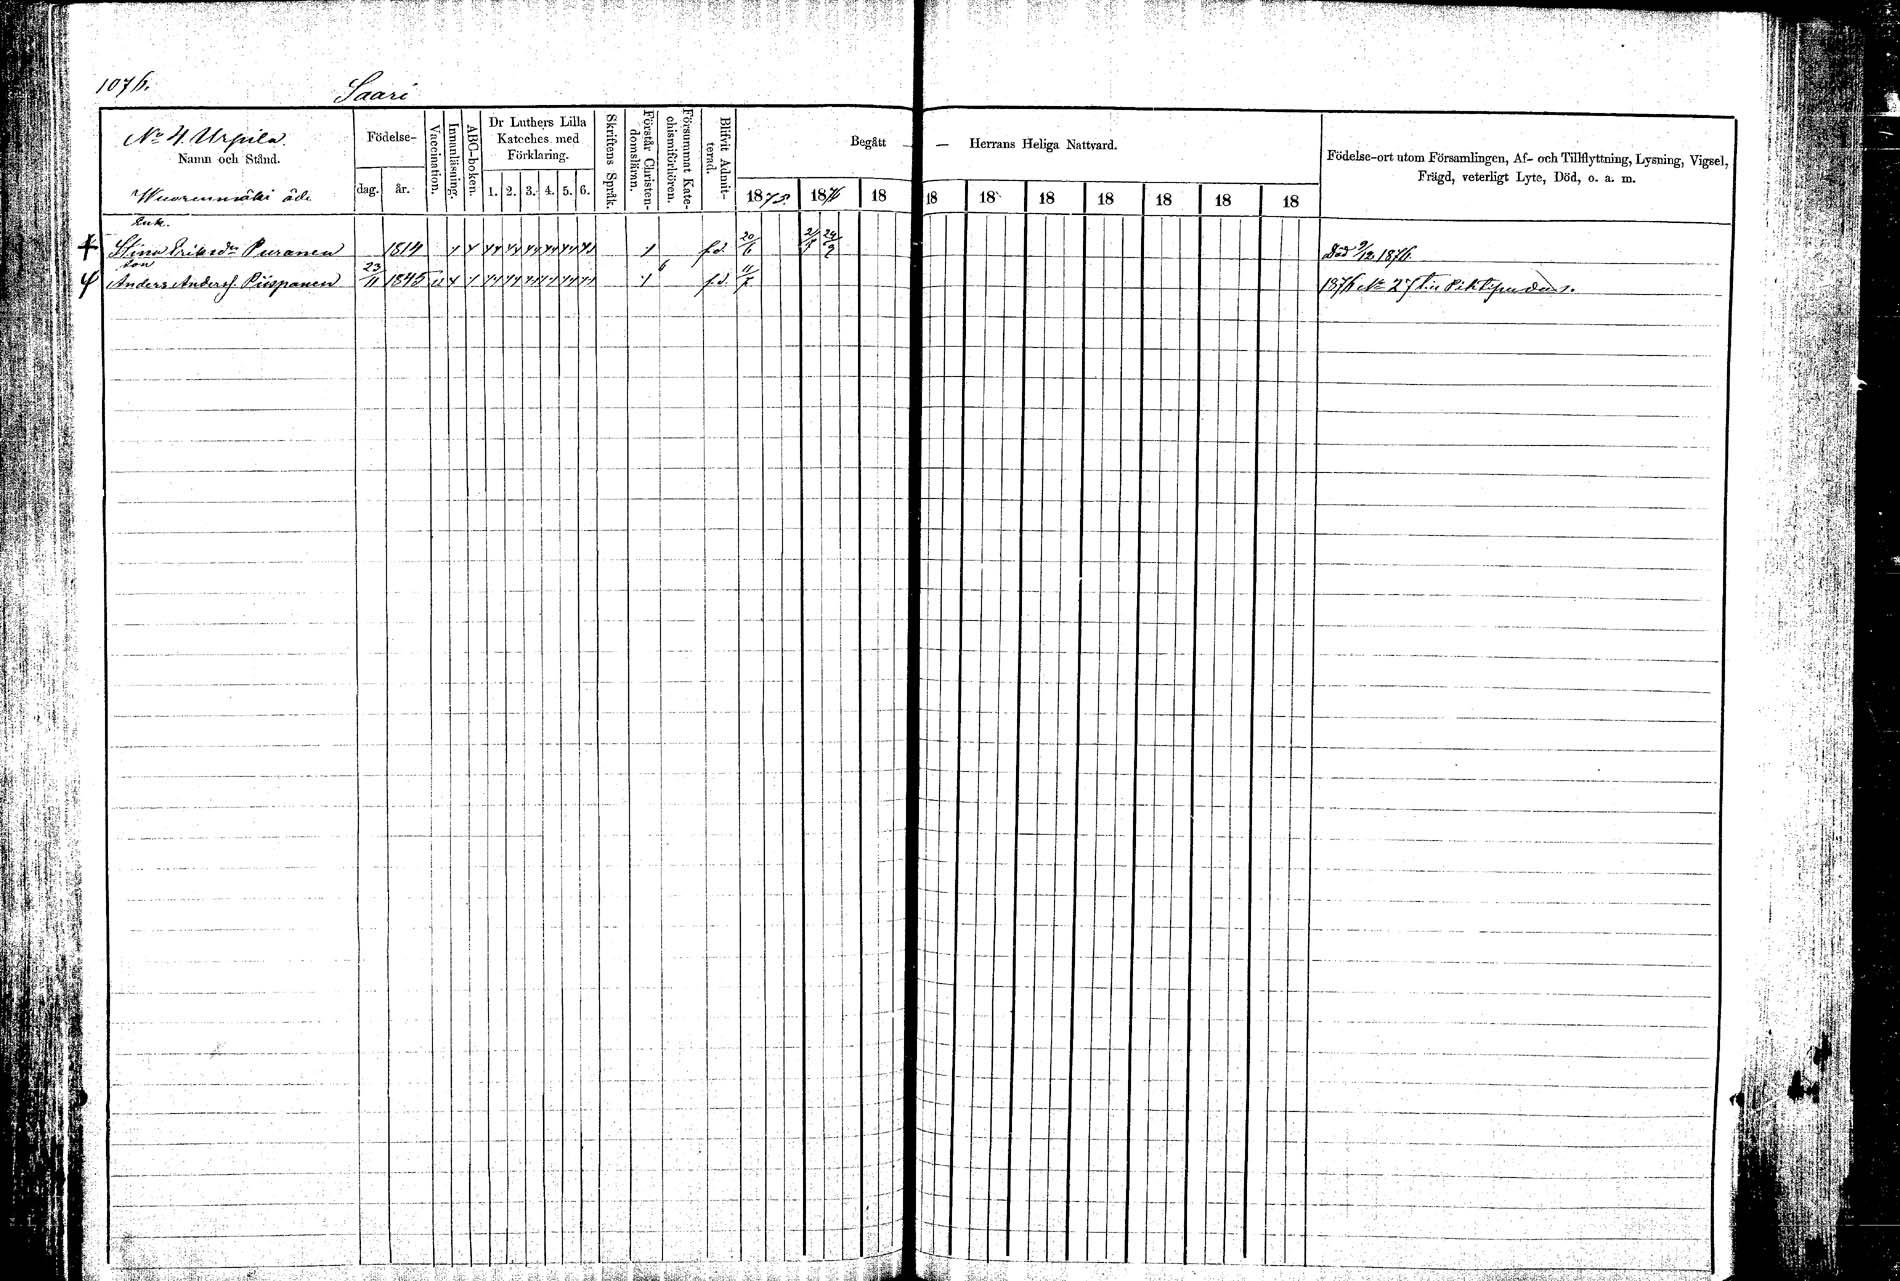 107 h.
Saari
No 4. Urpila.
Namn och Stånd.
Wuorenmäki öde
Födelse-
dag. år.
Vaccination.
Innanläsning.
ABC-boken.
Dr Luthers Lilla
Kateches med
Förklaring.
1. 2. 3. 4. 5. 6.
Skriftens Språk.
Förstår Christen-
domslämn.
Försummat Kate-
chismiförhören.
Blifvit Admit-
terad.
Begått — — Herrans Heliga Nattvard.
1875 1876 18 18 18 18 18 18 18 18
Födelse-ort utom Församlingen, Af- och Tillflyttning, Lysning, Vigsel,
Frägd, veterligt Lyte, Död, o. a. m.
Enk.
Stina Eriksdr Puranen 1814 f.d. 20/6 Död 9/12 1876.
son
Anders Anders. Piispanen 23/11 1845 f.d. 11/7 1876 No 27 till Pihtipudas.